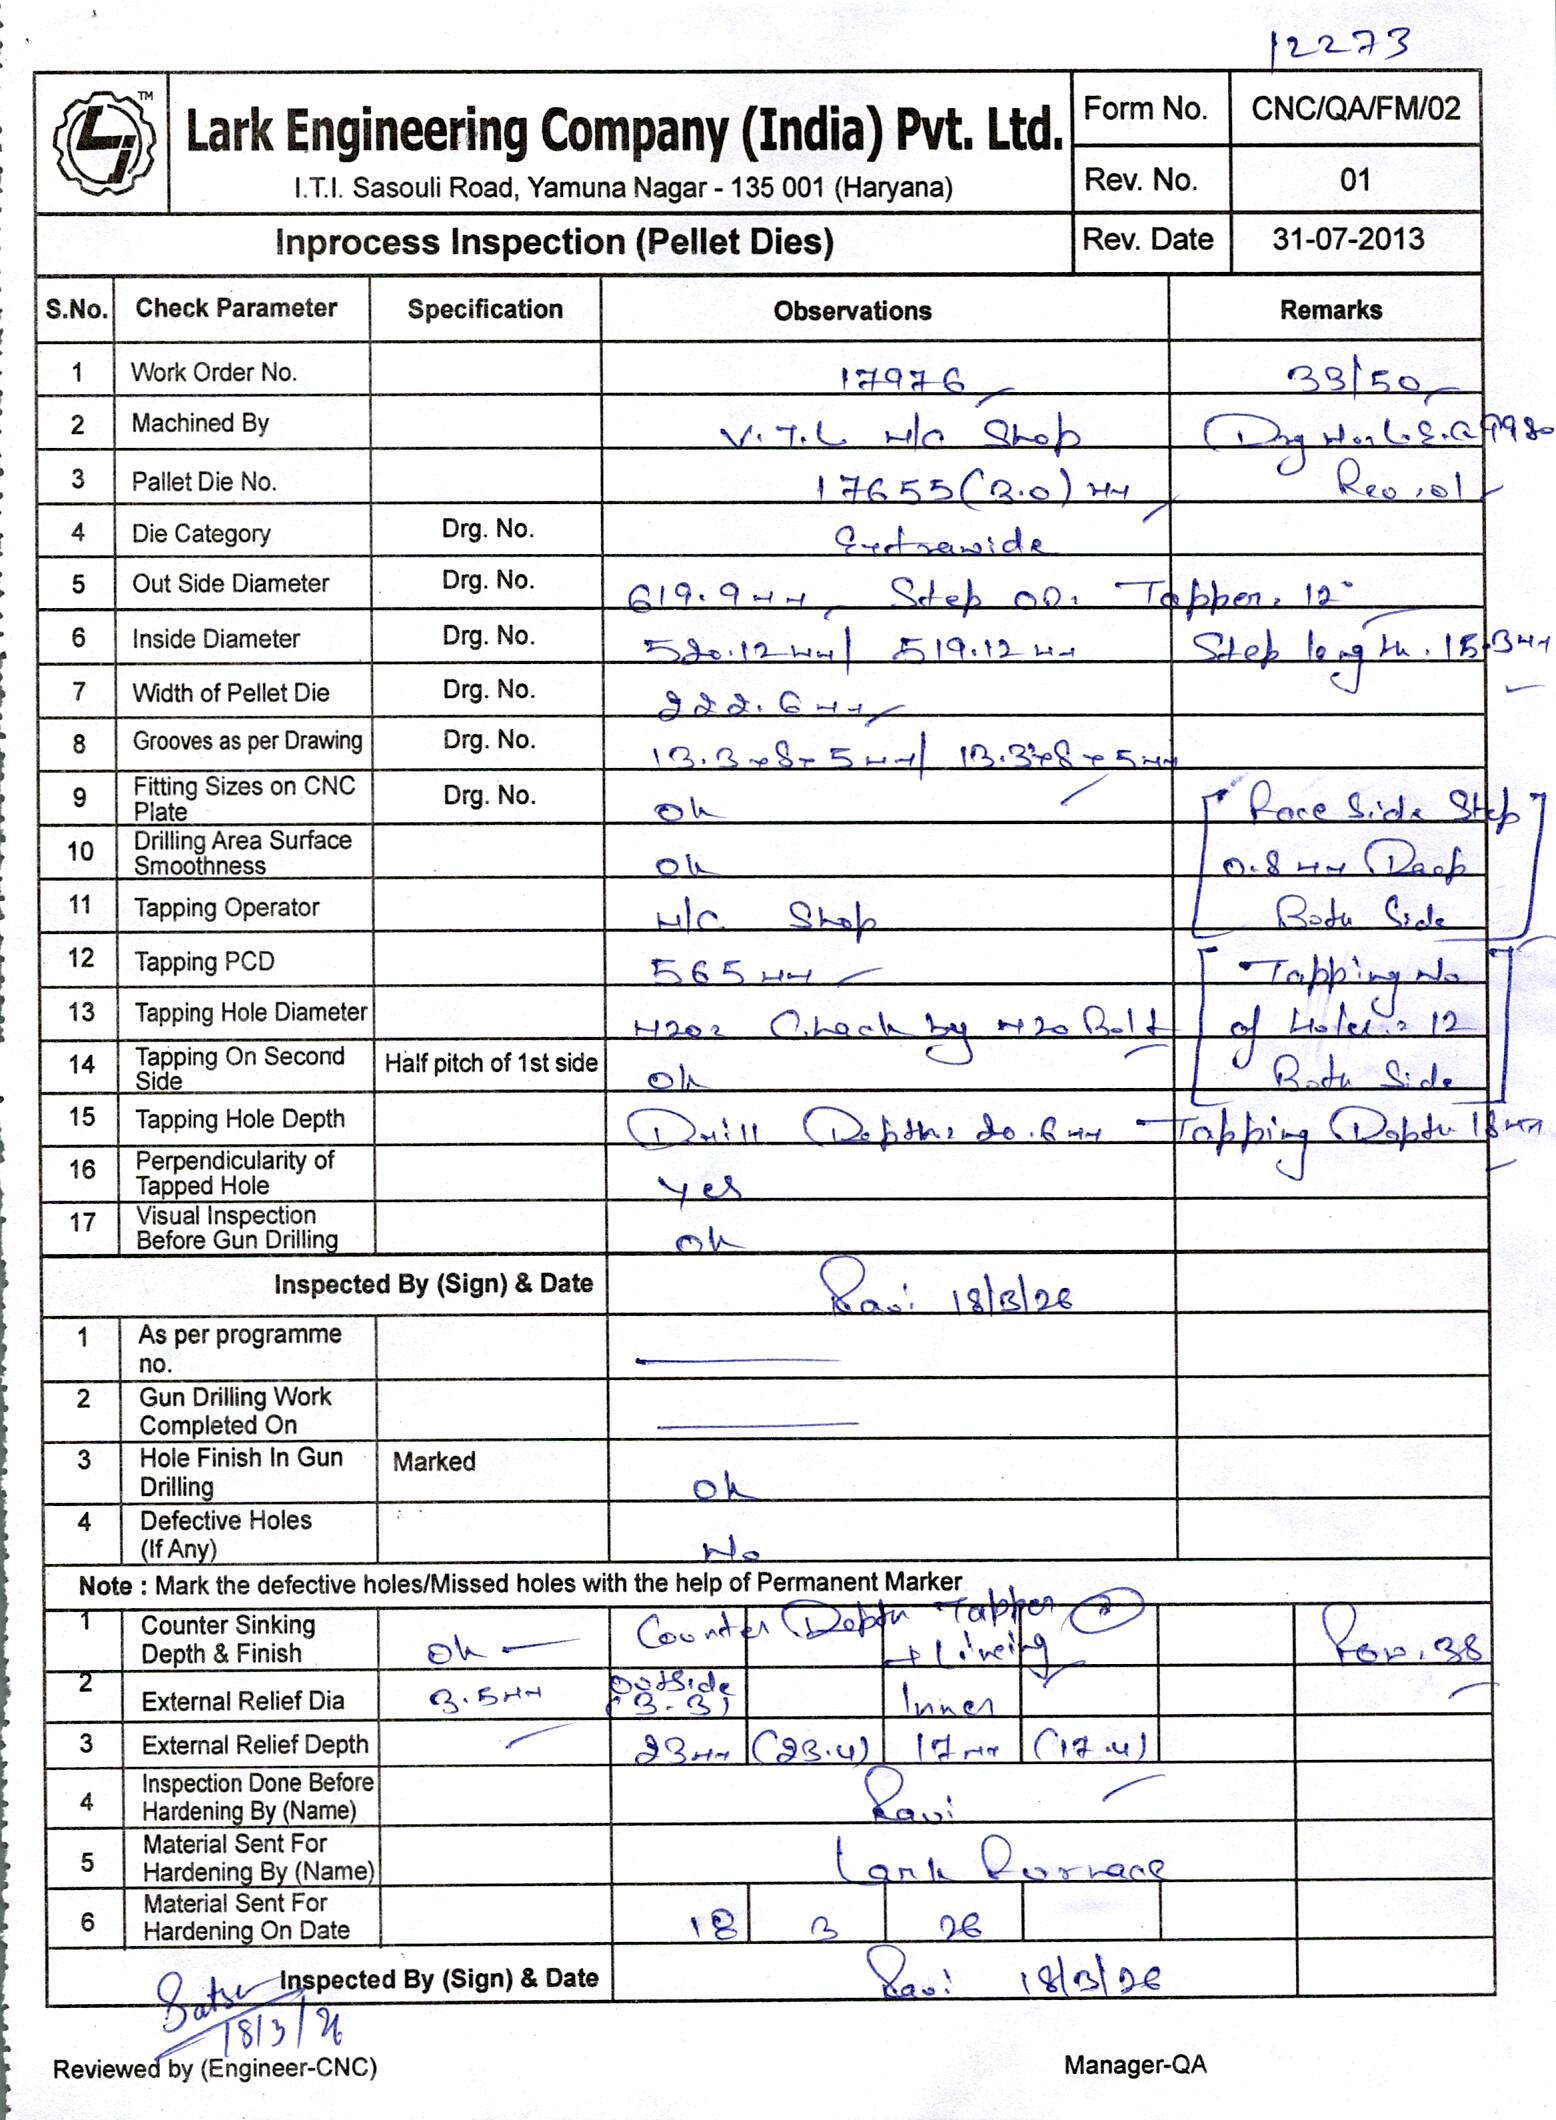 12273
TM
Lark Engineering Company (India) Pvt. Ltd.
I.T.I. Sasouli Road, Yamuna Nagar - 135 001 (Haryana)
Form No. CNC/QA/FM/02
Rev. No. 01
Inprocess Inspection (Pellet Dies) Rev. Date 31-07-2013
S.No. Check Parameter Specification Observations Remarks
1 Work Order No. 17976 33/50
2 Machined By V.T.L M/C Shop Drg No. L.S.C 9980
3 Pallet Die No. 17655 (3.0) MM Rev. 01
4 Die Category Drg. No. Extrawide
5 Out Side Diameter Drg. No. 619.9 MM Step OD. Tapper. 12°
6 Inside Diameter Drg. No. 520.12 MM / 519.12 MM Step length. 15.3 MM
7 Width of Pellet Die Drg. No. 222.6 MM
8 Grooves as per Drawing Drg. No. 13.3x8x5 MM / 13.3x8x5 MM
9 Fitting Sizes on CNC Plate Drg. No. Ok Race Side Step
10 Drilling Area Surface Smoothness Ok 0.8 MM Deep
11 Tapping Operator M/C Shop Both Side
12 Tapping PCD 565 MM Tapping No
13 Tapping Hole Diameter M20: Check by M20 Bolt of Holes: 12
14 Tapping On Second Side Half pitch of 1st side Ok Both Side
15 Tapping Hole Depth Drill Depth: 20.6 MM Tapping Depth 18 MM
16 Perpendicularity of Tapped Hole Yes
17 Visual Inspection Before Gun Drilling Ok
Inspected By (Sign) & Date Ravi 18/3/26
1 As per programme no.
2 Gun Drilling Work Completed On
3 Hole Finish In Gun Drilling Marked Ok
4 Defective Holes (If Any) No
Note : Mark the defective holes/Missed holes with the help of Permanent Marker
1 Counter Sinking Depth & Finish Ok Counter Depth Tapper + Lineing Row. 38
2 External Relief Dia 3.5 MM Outside (3-3) Inner
3 External Relief Depth 23 MM (23.4) 17 MM (17.4)
4 Inspection Done Before Hardening By (Name) Ravi
5 Material Sent For Hardening By (Name) Lark Furnace
6 Material Sent For Hardening On Date 18 3 26
Inspected By (Sign) & Date Ravi 18/3/26
18/3/26
Reviewed by (Engineer-CNC) Manager-QA